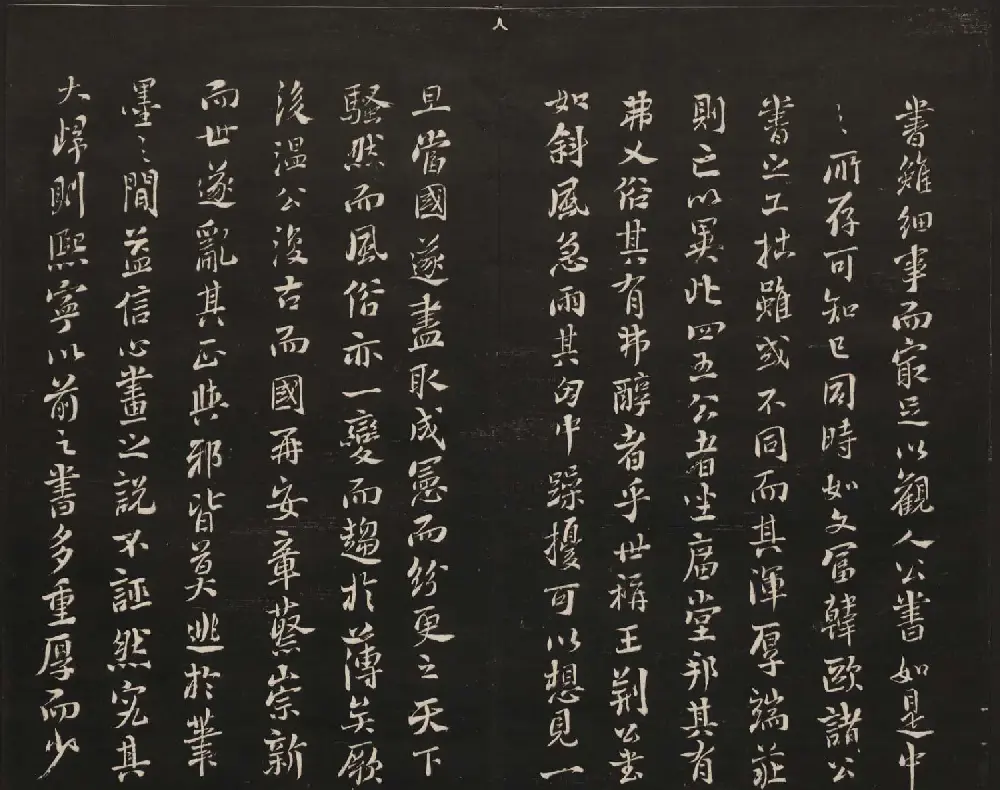 書雖細事而㝡足以觀人公書如是中
〻所存可知已同時如文冨韓歐諸公
書之工拙雖或不同而其渾厚端莊
則亡以異此四五公者坐廟堂邦其有
弗乂俗其有弗醇者乎世稱王荆公書
如斜風急雨其匈中躁擾可以想見一
旦當國遂盡取成憲而紛更之天下
騷然而風俗亦一變而趨於薄矣厥
後溫公復古而國再安章蔡崇新
而世遂亂其正與邪皆莫逃於筆
墨之閒益信心畫之說不誣然究其
大歸則熙寧以前之書多重厚而少